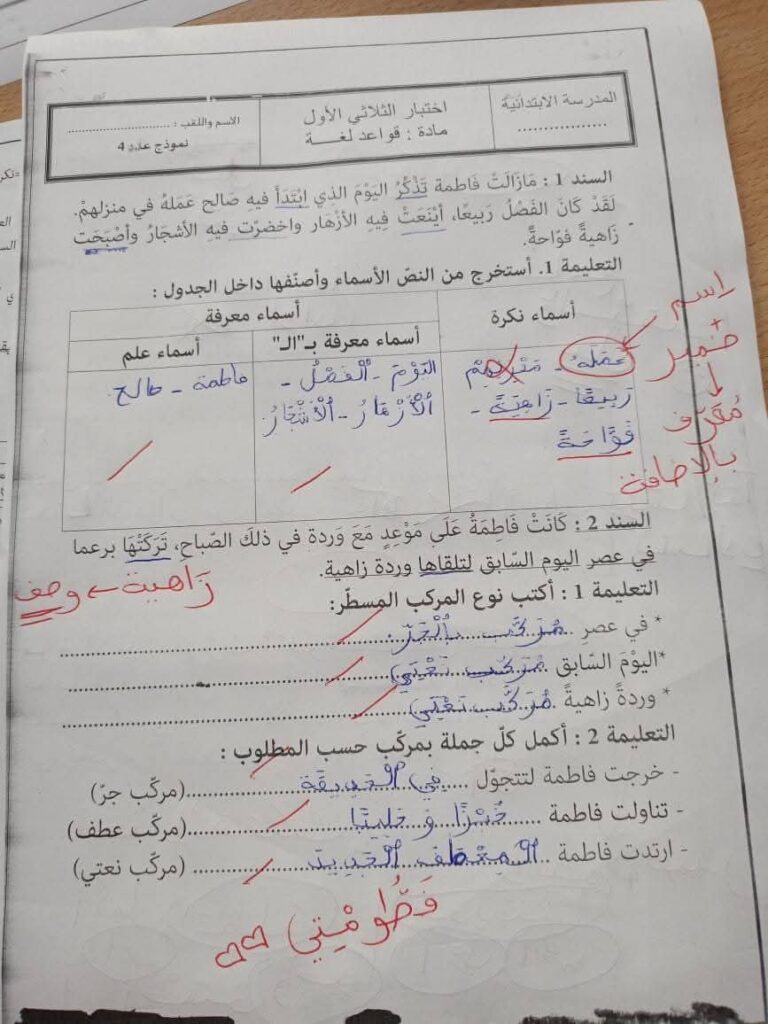 المدرسة الابتدائية
................
اختبار الثلاثي الأول
مادة : قواعد لغة
الاسم واللقب : ............................
نموذج عدد 4
السند 1 : مَازَالَتْ فَاطمة تَذْكُرُ اليَوْمَ الذِي ابْتَدَأَ فيهِ صَالح عَمَلهُ في منزلهمْ.
لَقَدْ كَانَ الفَصْلُ رَبيعًا، أيْنَعَتْ فِيهِ الأزْهَار واخضرّت فيهِ الأشجَارُ وأصْبَحَت
زَاهيةً فوّاحةً.
التعليمة 1. أستخرج من النصّ الأسماء وأصنّفها داخل الجدول :
أسماء نكرة
أسماء معرفة
أسماء معرفة بـ"الـ"
أسماء علم
عَمَلَهُ - مَنْزِلِهِمْ
رَبِيعًا - زَاهِيَةً -
فَوَّاحَةً
الْيَوْمَ - الْفَصْلُ -
الْأَزْهَارُ - الْأَشْجَارُ
فاطمة - صالح
اسم
+
ضمير
↓
مُعَرَّف
بالإضافة
السند 2 : كَانَتْ فَاطِمَةُ عَلَى مَوْعِدٍ مَعَ وَردة في ذلكَ الصّباحِ، تَرَكَتْهَا برعما
في عصر اليوم السّابق لتلقاها وردة زاهية.
زَاهية ← وصف
التعليمة 1 : أكتب نوع المركب المسطّر:
* في عصرِ .. مُرَكَّب بِالْجَرِّ ..........
*اليوْمَ السّابق .. مُرَكَّب نَعْتِي ..........
* وردةً زاهيةً .. مُرَكَّب نَعْتِي ..........
التعليمة 2 : أكمل كلّ جملة بمركّب حسب المطلوب :
- خرجت فاطمة لتتجوّل ..... في الْحَدِيقَة ..........(مركّب جرّ)
- تناولت فاطمة ..... خُبْزًا وَ حَلِيبًا ..........(مركّب عطف)
- ارتدت فاطمة .. الْمِعْطَفَ الْجَدِيد .......... (مركّب نعتي)
فَطُّومْتِي